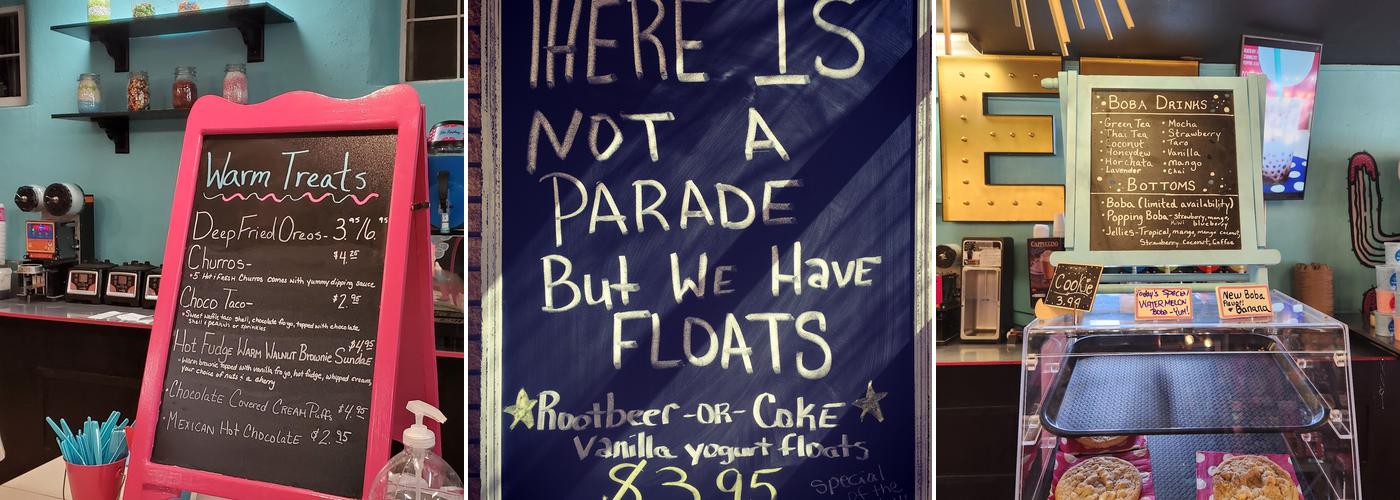 Warm Treats
Deep Fried Oreos- 3.95/6.95
Churros- $4.25
•5 Hot & Fresh Churros comes with yummy dipping sauce
Choco Taco- $2.95
•Sweet waffle taco shell, chocolate fro.yo, topped with chocolate
shell & peanuts or sprinkles
Hot Fudge Warm Walnut Brownie Sundae $4.95
•Warm brownie topped with vanilla fro.yo, hot fudge, whipped cream,
your choice of nuts & a cherry
•Chocolate Covered Cream Puffs $4.95
•Mexican Hot Chocolate $2.95
THERE IS
NOT A
PARADE
But WE HAVE
FLOATS
Rootbeer -OR- Coke
Vanilla yogurt floats
$3.95
special
of the
E
•Boba Drinks•
•Green Tea •Mocha
•Thai Tea •Strawberry
•Coconut •Taro
•Honeydew •Vanilla
•Horchata •Mango
•Lavender •Chai
Bottoms
•Boba (limited availability)
•Popping Boba- strawberry, mango,
kiwi blueberry
•Jellies-Tropical, mango, mango coconut,
Strawberry, Coconut, Coffee
CAPPUCCINO
Cookie
3.99
Today's Special
WATERMELON
Boba-YUM!
New Boba
Flavor:
Banana